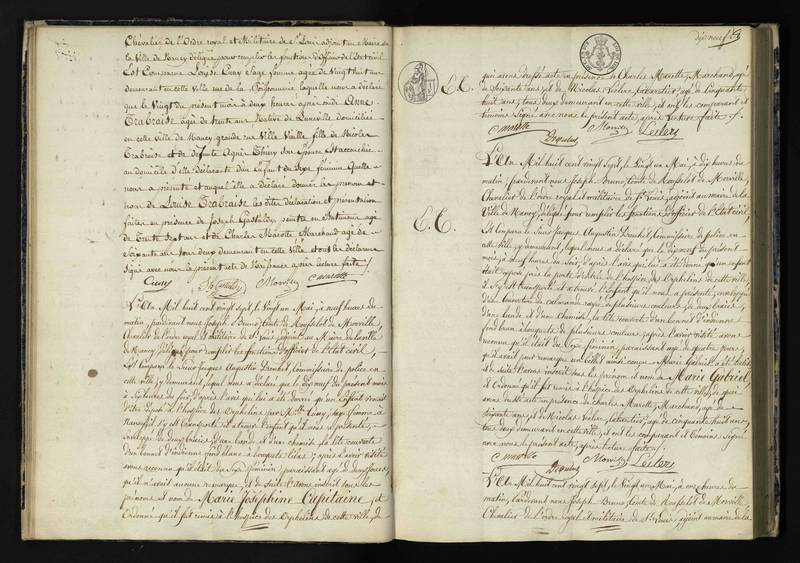 Chevalier de l'Ordre royal et Militaire de St Louis adjoint au Maire de
la Ville de Nancy délégué pour remplir les fonctions d'officier de l'Etat civil
Est Comparue Cuny Sage femme agée de Vingt huit ans
demeurant en cette Ville rue de la laquelle nous a déclaré
que le Vingt du présent mois à deux heures après midi Anne
Trabraise agée de trente ans Native de Lunéville domiciliée
en cette Ville de Nancy grande rue Ville Vieille fille de Nicolas
Trabraise et de défunte Agnès Thiery son Epouse Est accouchée
au domicile d'elle déclarante d'un Enfant du Sexe féminin Quelle
nous a présenté et auquel elle a déclaré donner le prénom et
nom de Louise Trabraise les dites déclaration et présentation
faites en présence de Joseph
de trente Sept ans et de Charles Marotte Marchand agé de
Soixante ans tous deux demeurant en cette Ville et ont les déclarant
Signé avec nous le présent acte de Naissance après lecture faite
Cuny Morville C marotte
L'An Mil huit cent vingt sept, le Vingt un Mai, à neuf heures du
matin, pardevant nous Joseph Bruno Comte de Morville,
Chevalier de l'ordre royal et militaire de St Louis adjoint au Maire de la ville
de Nancy délégué pour remplir les fonctions d'officier de l'Etat civil,
Est Comparu le Sieur Jacques Augustin Drouhet, Commissaire de police en
cette ville, y demeurant, lequel nous a déclaré que le dix neuf du présent mois
à heures du soir, d'après l'avis qui lui a été donné qu'un Enfant venait
d'être déposé à l'hospice des Orphelins par Cuny, Sage femme à
Nancy, il s'y est transporté et a trouvé l'enfant qu'il nous a présenté,
enveloppé de deux langes, d'une bande et d'une chemise, la tête couverte
d'un bonnet d'indienne fond blanc à bouquets lilas, après l'avoir visité
avons reconnu qu'il était du Sexe féminin, paraissant agé de deux jours,
qu'il n'avait aucune remarque, et de suite l'avons inscrit sous les
prénoms et nom de Marie Joséphine Capitaine, et
Ordonné qu'il fut remis à l'hospice des Orphelins de cette ville, de
dix neuf
quoi avons dressé acte en présence de Charles Marotte, Marchand, agé
de Soixante ans, et de Nicolas Leclerc, agé de Cinquante
huit ans, tous deux demeurant en cette ville, et ont les comparant et
témoins Signé avec nous le présent acte, après lecture faite
C marotte Drouhet Morville Leclerc
E.E.
L'An Mil huit cent vingt sept, le Vingt un Mai, à dix heures du
matin, pardevant nous Joseph Bruno, Comte de Morville,
Chevalier de l'ordre royal et militaire de St Louis, adjoint au maire de la
Ville de Nancy, délégué pour remplir les fonctions d'officier de l'Etat civil,
Est Comparu le Sieur Jacques Augustin Drouhet, Commissaire de police en
cette ville, y demeurant, lequel nous a déclaré que le dix neuf du présent
mois, à neuf heures du soir, d'après l'avis qui lui a été donné qu'un enfant
était déposé près la porte d'entrée de l'hospice des Orphelins de cette ville,
il s'y est transporté et a trouvé l'enfant qu'il nous a présenté, enveloppé
d'une couverture de calmande rayée de plusieurs couleurs, de deux langes,
d'une bande et d'une chemise, la tête couverte d'un bonnet d'indienne
fond brun à bouquets de plusieurs couleurs, après l'avoir visité avons
reconnu qu'il était du Sexe féminin, paraissant agé de quatre jours,
qu'il avait pour remarque un billet ainsi conçu Marie Gabriel a été
et de suite l'avons inscrit sous les prénom et nom de Marie Gabriel
et Ordonné qu'il fut remis à l'hospice des Orphelins de cette ville, de quoi
avons dressé acte en présence de Charles Marotte, Marchand, agé de
Soixante ans, et de Nicolas Leclerc, agé de cinquante huit ans,
tous deux demeurant en cette ville, et ont les comparant et témoins Signé
avec nous le présent acte, après lecture faite
C marotte Drouhet Morville Leclerc
L'An Mil huit cent vingt sept, le Vingt un Mai, à onze heures du
matin, pardevant nous Joseph Bruno, Comte de Morville
Chevalier de l'ordre royal et militaire de St Louis, adjoint au maire de la